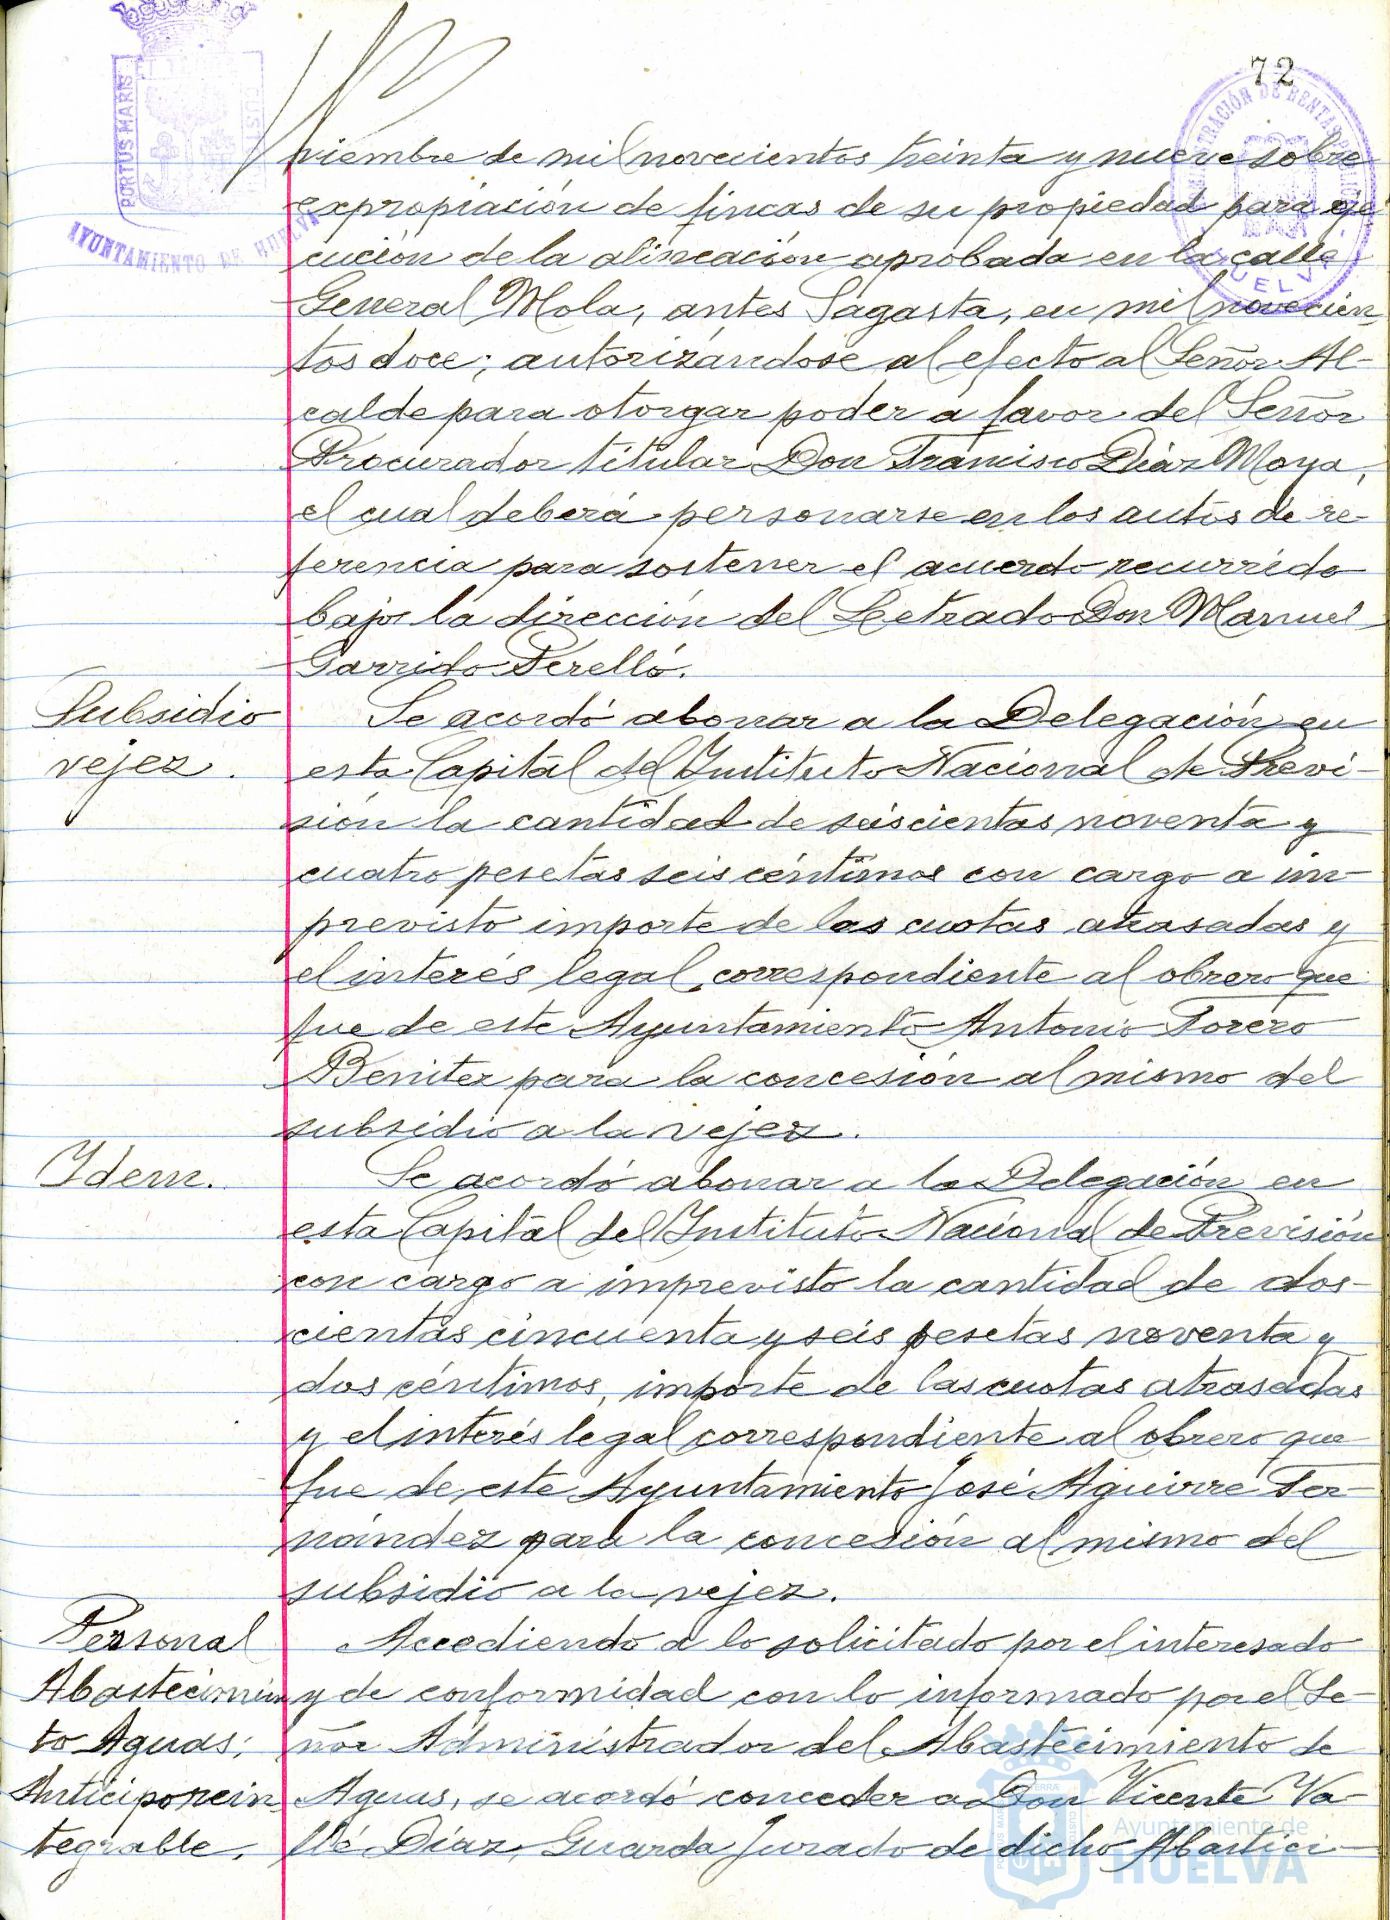 72
PORTUS MARIS CUST
AYUNTAMIENTO DE HUELVA
ADMINISTRACIÓN DE RENTAS PÚBLICAS
HUELVA
viembre de mil novecientos treinta y nueve sobre
expropiación de fincas de su propiedad para eje
cución de la alineación aprobada en la calle
General Mola, antes Sagasta, en mil novecien-
tos doce; autorizándose al efecto al Señor Al-
calde para otorgar poder a favor del Señor
Procurador titular Don Francisco Díaz Moya,
el cual deberá personarse en los autos de re-
ferencia para sostener el acuerdo recurrido
bajo la dirección del Letrado Don Manuel
Garrido Perelló.
Subsidio
vejez.
Se acordó abonar a la Delegación en
esta Capital del Instituto Nacional de Previ-
sión la cantidad de seiscientas noventa y
cuatro pesetas seis céntimos con cargo a im-
previsto importe de las cuotas atrasadas y
el interés legal correspondiente al obrero que
fue de este Ayuntamiento Antonio Torero
Benitez para la concesión al mismo del
subsidio a la vejez.
Idem.
Se acordó abonar a la Delegación en
esta Capital del Instituto Nacional de Previsión
con cargo a imprevisto la cantidad de dos-
cientas cincuenta y seis pesetas noventa y
dos céntimos, importe de las cuotas atrasadas
y el interés legal correspondiente al obrero que
fue de este Ayuntamiento José Aguirre Fer-
nández para la concesión al mismo del
subsidio a la vejez.
Personal
Abastecimien
to Aguas;
Anticipo rein-
tegrable.
Accediendo a lo solicitado por el interesado
y de conformidad con lo informado por el Se-
ñor Administrador del Abastecimiento de
Aguas, se acordó conceder a Don Vicente Va-
llé Díaz, Guarda Jurado de dicho Abasteci-
Ayuntamiento de
HUELVA